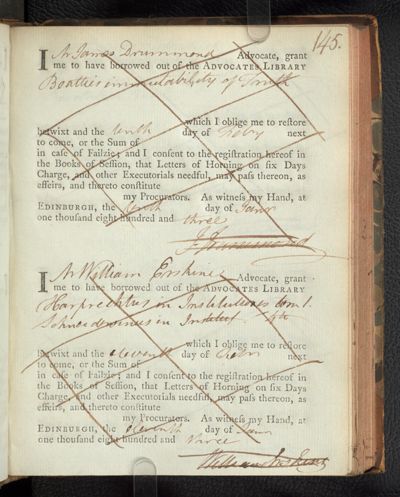 145.
I Mr James Drummond Advocate, grant
me to have borrowed out of the ADVOCATES LIBRARY
Beatties immutability of Truth
which I oblige me to reſtore
betwixt and the tenth day of Feby next
to come, or the Sum of
in caſe of Failzie; and I conſent to the regiſtration hereof in
the Books of Seſſion, that Letters of Horning on ſix Days
Charge, and other Executorials needful, may paſs thereon, as
effeirs, and thereto conſtitute
my Procurators. As witneſs my Hand, at
EDINBURGH, the tenth day of Janr
one thousand eight hundred and three
J. Drummond
I Mr William Erskine Advocate, grant
me to have borrowed out of the ADVOCATES LIBRARY
Harprechtus in Institutiones tom 1.
in Institut 4to
which I oblige me to reſtore
betwixt and the eleventh day of Febr next
to come, or the Sum of
in caſe of Failzie; and I conſent to the regiſtration hereof in
the Books of Seſſion, that Letters of Horning on ſix Days
Charge, and other Executorials needful, may paſs thereon, as
effeirs, and thereto conſtitute
my Procurators. As witneſs my Hand, at
EDINBURGH, the eleventh day of Janr
one thousand eight hundred and three
William Erskine